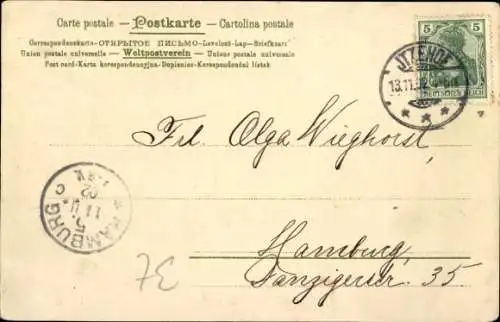 Carte postale — Postkarte — Cartolina postale
Correspondenzkarte - ОТКРЫТОЕ ПИСЬМО - Levelező-Lap - Briefkaart
Union postale universelle — Weltpostverein — Unione postale universale
Post card - Karta korespondencyjna - Dopisnice - Korespondenční lístek
5 5
DEUTSCHES REICH
13.11.02
Frl. Olga Wieghorst,
HAMBURG
Hamburg,
Danzigerstr. 35